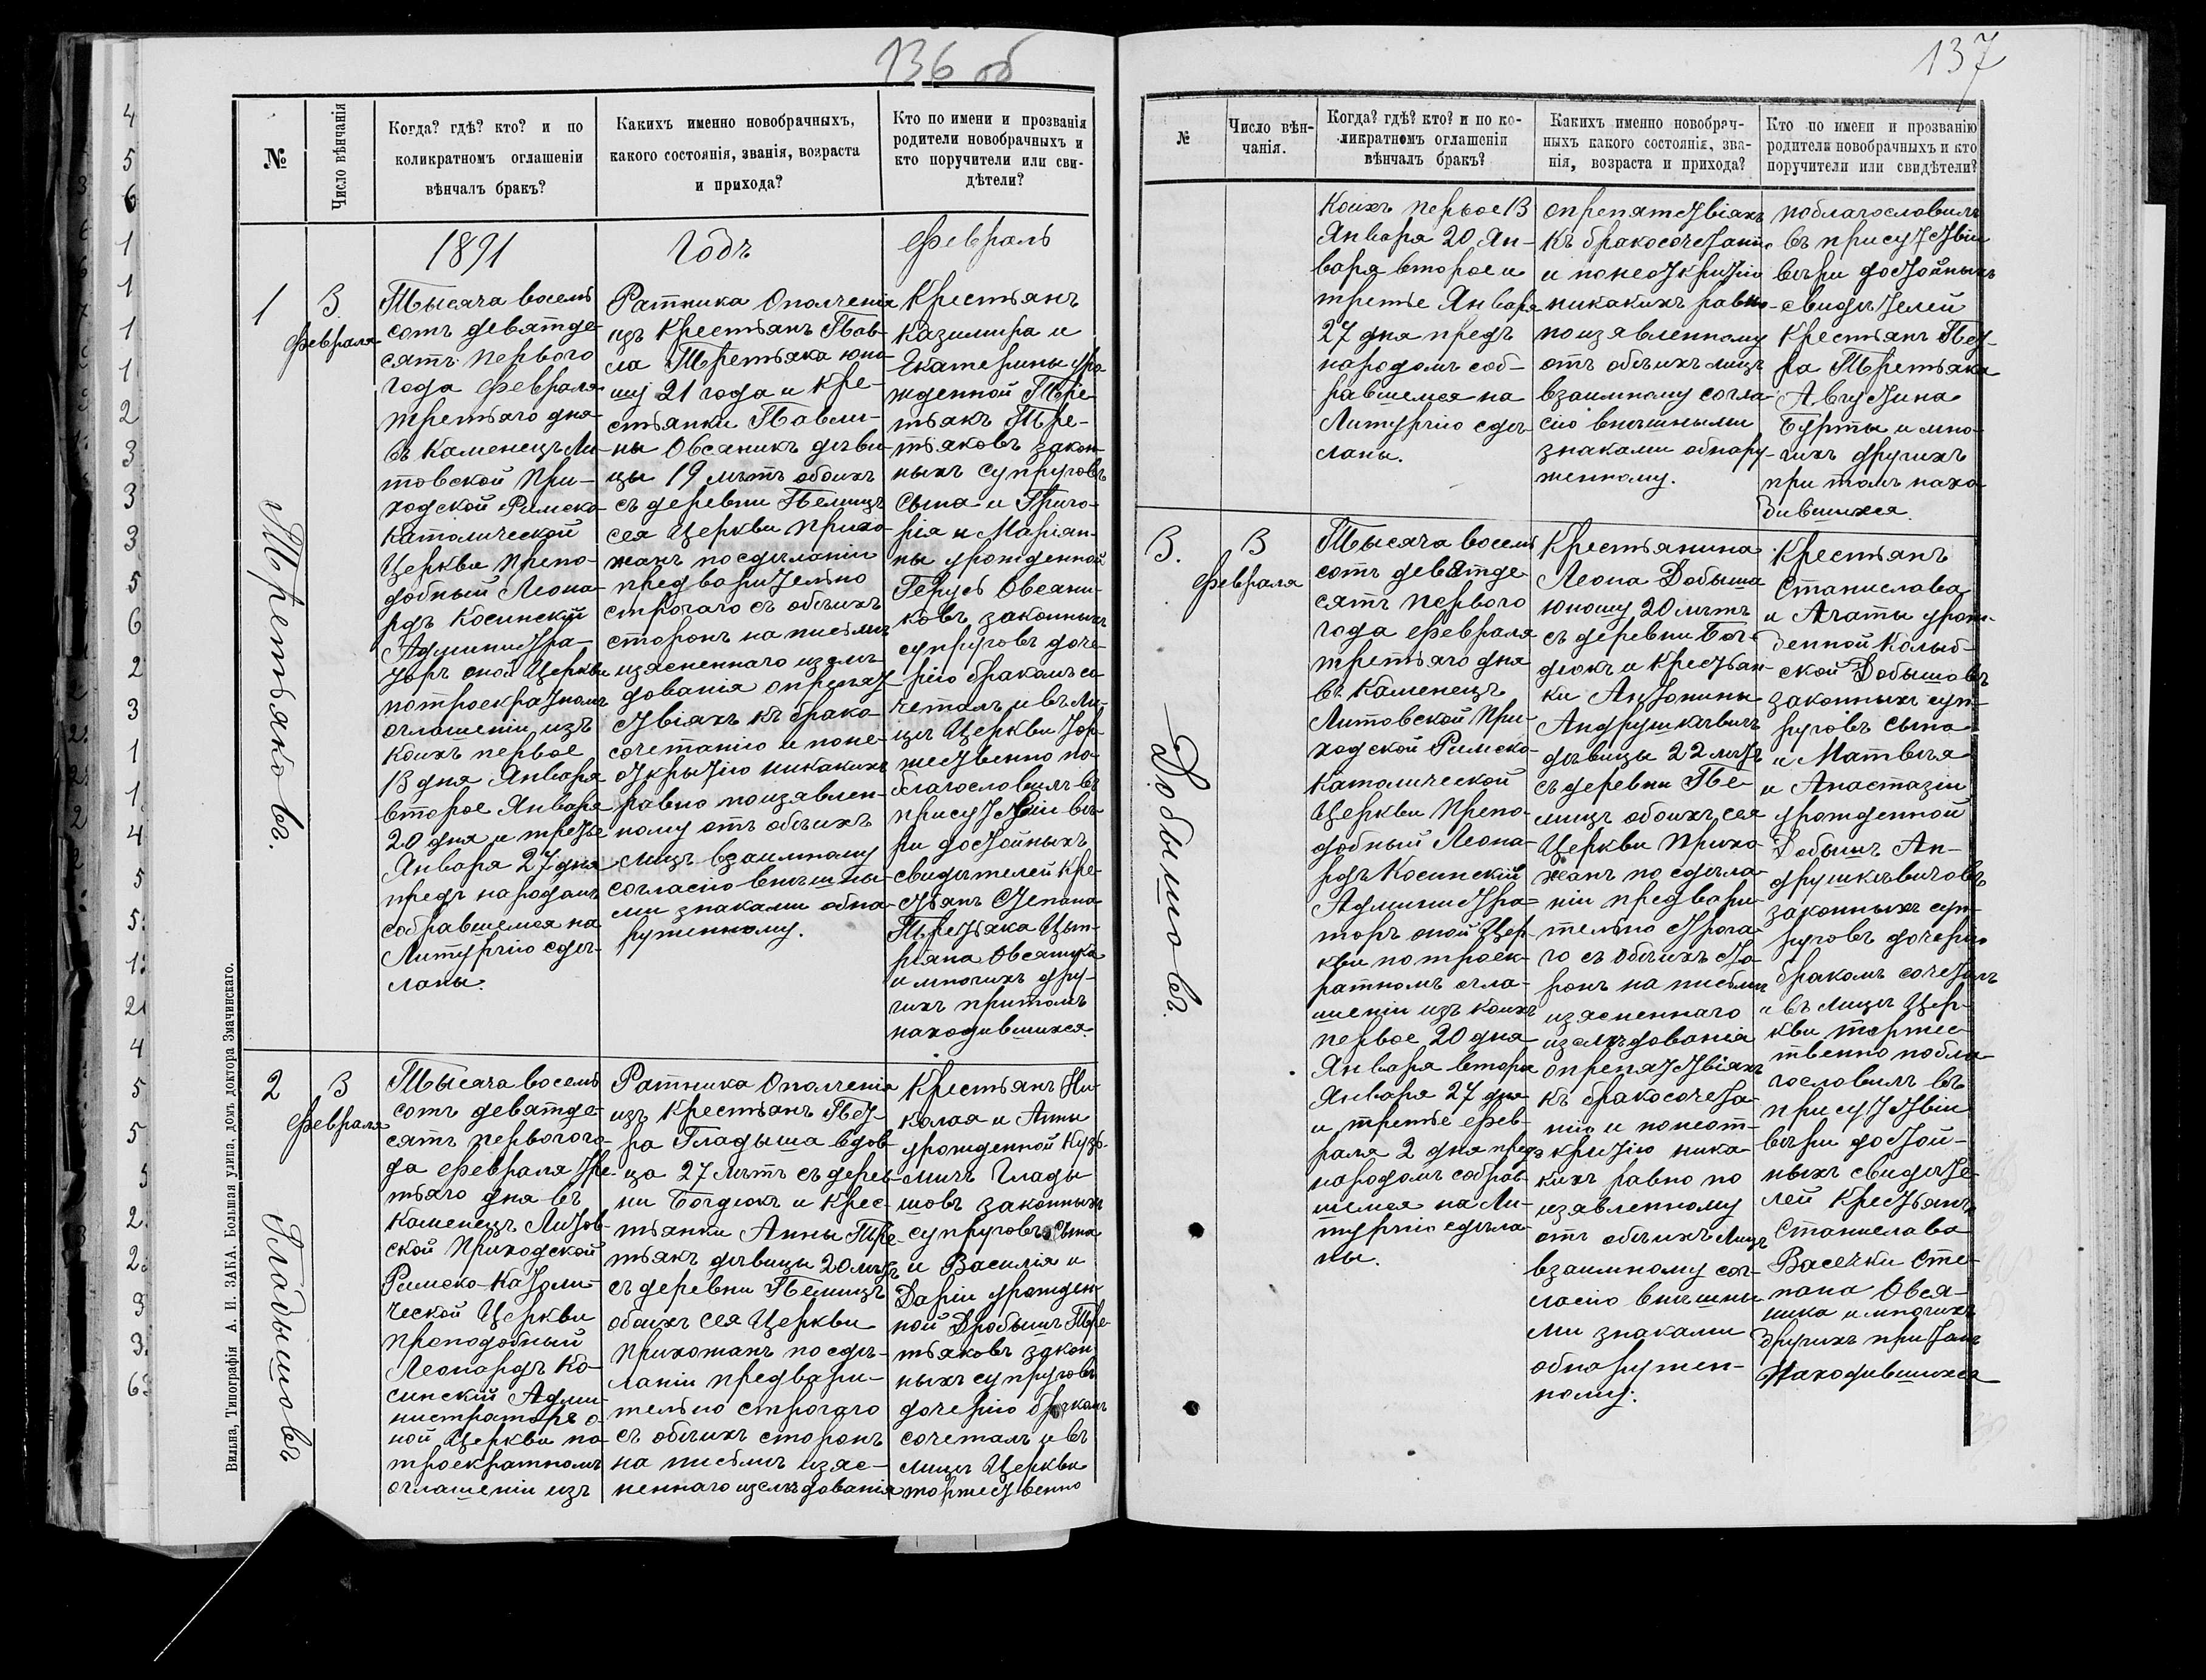 136 об
№
Число вѣнчанія
Когда? гдѣ? кто? и по
коликратномъ оглашеніи
вѣнчалъ бракъ?
Какихъ именно новобрачныхъ,
какого состоянія, званія, возраста
и прихода?
Кто по имени и прозванія
родители новобрачныхъ и
кто поручители или сви-
дѣтели?
1891
Годъ
Февраль
1
3
Февраля
Третьяковъ.
Тысяча восемь
сотъ девятде-
сятъ перваго
года февраля
третьяго дня
въ Каменецъ Ли-
товской При-
ходской Римско
Католической
Церкви Препо-
добный Леона-
рдъ Косинскій
Администра-
торъ оной Церкви
по троекратномъ
оглашеніи изъ
коихъ первое
13 дня Января
второе Января
20 дня и третье
Января 27 дня
предъ народомъ
собравшемся на
Литургію сдѣ-
ланы.
Ратника Ополченія
изъ Крестьянъ Пав-
ла Третьяка юно-
шу 21 года и Кре-
стьянки Павли-
ны Овсяникъ дѣви-
цы 19 лѣтъ обоихъ
съ деревни Пелищъ
сея Церкви прихо-
жанъ по сдѣланіи
предварительно
строгаго съ обѣихъ
сторонъ на письмѣ
изясненнаго изслѣ-
дованія о препят-
ствіяхъ къ брако-
сочетанію и поне-
открытію никакихъ
равно по изявлен-
ному отъ обѣихъ
лицъ взаимному
согласію внѣшны-
ми знаками обна-
руженному.
Крестьянъ
Казимира и
Екатерины уро-
жденной Тре-
тьякъ Тре-
тьяковъ закон-
ныхъ супруговъ
сына и Григо-
рія и Маріан-
ны урожденной
Герусь Овсяни-
ковъ законныхъ
супруговъ доче-
рію бракомъ со-
четалъ и въ ли-
цѣ Церкви тор-
жественно по-
благословилъ въ
присутствіи вѣ-
ри достойныхъ
свидѣтелей Кре-
стьянъ Степана
Третьяка Цып-
ріана Овсяника
и многихъ дру-
гихъ притомъ
находившихся.
2
3
Февраля
Гладышовъ
Тысяча восемь
сотъ девятде-
сятъ перваго го-
да февраля тре-
тьяго дня въ
Каменецъ Литов-
ской Приходской
Римско-Католи-
ческой Церкви
Преподобный
Леонардъ Ко-
синскій Адми-
нистраторъ о-
ной Церкви по
троекратномъ
оглашеніи изъ
Ратника Ополченія
изъ Крестьянъ Пет-
ра Гладыша вдов-
ца 27 лѣтъ съ дерев-
ни Богдюкъ и Крес-
тьянки Анны Тре-
тьякъ дѣвицы 20 лѣтъ
съ деревни Пелищъ
обоихъ сея Церкви
Прихожанъ по сдѣ-
ланіи предвари-
тельно строгаго
съ обѣихъ сторонъ
на письмѣ изяс-
неннаго изслѣдованія
Крестьянъ Ни-
колая и Анны
урожденной Кузь-
мичъ Глады
шовъ законныхъ
супруговъ сына
и Василія и
Дарии урожден-
ной Дробышъ Тре-
тьяковъ закон
ныхъ супруговъ
дочерію бракомъ
сочеталъ и въ
лицѣ Церкви
торжественно
Вильна, Типографія А. И. ЗАКА. Большая улица, домъ доктора Змачинскаго.
137
№
Число вѣн-
чанія.
Когда? гдѣ? кто? и по ко-
ликратномъ оглашеніи
вѣнчалъ бракъ?
Какихъ именно новобрач-
ныхъ какого состоянія, зва-
нія, возраста и прихода?
Кто по имени и прозванію
родители новобрачныхъ и кто
поручители или свидѣтели?
коихъ первое 13
Января 20 Ян-
варя второе и
третье Января
27 дня предъ
народомъ соб-
равшемся на
Литургію сдѣ-
ланы.
о препятствіяхъ
къ бракосочетанію
и понеоткрытію
никакихъ равно
по изявленному
отъ обѣихъ лицъ
взаимному согла-
сію внѣшными
знаками обнару-
женному.
поблагословилъ
въ присутствіи
вѣри достойныхъ
свидѣтелей
Крестьянъ Пет-
ра Третьяка
Августина
Бурты и мно-
гихъ другихъ
при томъ нахо-
дившихся.
3.
3
Февраля
Добышовъ.
Тысяча восемь
сотъ девятде
сятъ перваго
года февраля
третьяго дня
въ Каменецъ
Литовской При-
ходской Римско
Католической
Церкви Препо-
добный Леона-
рдъ Косинскій
Администра-
торъ оной Цер-
кви по троек-
ратномъ огла-
шеніи изъ коихъ
первое 20 дня
Января второе
Января 27 дня
и третье фев-
раля 2 дня предъ
народомъ собрав-
шемся на Ли-
тургію сдѣла-
ны.
Крестьянина
Леона Добыша
юношу 20 лѣтъ
съ деревни Бог-
дюкъ и Крестьян-
ки Антонины
Андрушкѣвичъ
дѣвицы 22 лѣтъ
съ деревни Пе-
лищъ обоихъ сея
Церкви Прихо-
жанъ по сдѣла-
ніи предвари-
тельно строга-
го съ обѣихъ сто-
ронъ на письмѣ
изясненнаго
изслѣдованія
о препятствіяхъ
къ бракосочета-
нію и понеот-
крытію ника-
кихъ равно по
изявленному
отъ обѣихъ лицъ
взаимному сог-
ласію внѣшны
ми знаками
обнаружен-
ному.
Крестьянъ
Станислава
и Агаты урож-
денной Колыб-
ской Добышовъ
законныхъ суп-
руговъ сына
и Матвѣя
и Анастазіи
урожденной
Добышъ Ан-
друшкѣвичовъ
законныхъ суп-
руговъ дочерію
бракомъ сочеталъ
и въ лицѣ Цер-
кви торжес-
твенно побла-
гословилъ въ
присутствіи
вѣри достой-
ныхъ свидѣте-
лей Крестьянъ
Станислава
Васечки Сте-
пана Овся-
ника и многихъ
другихъ притомъ
находившихся